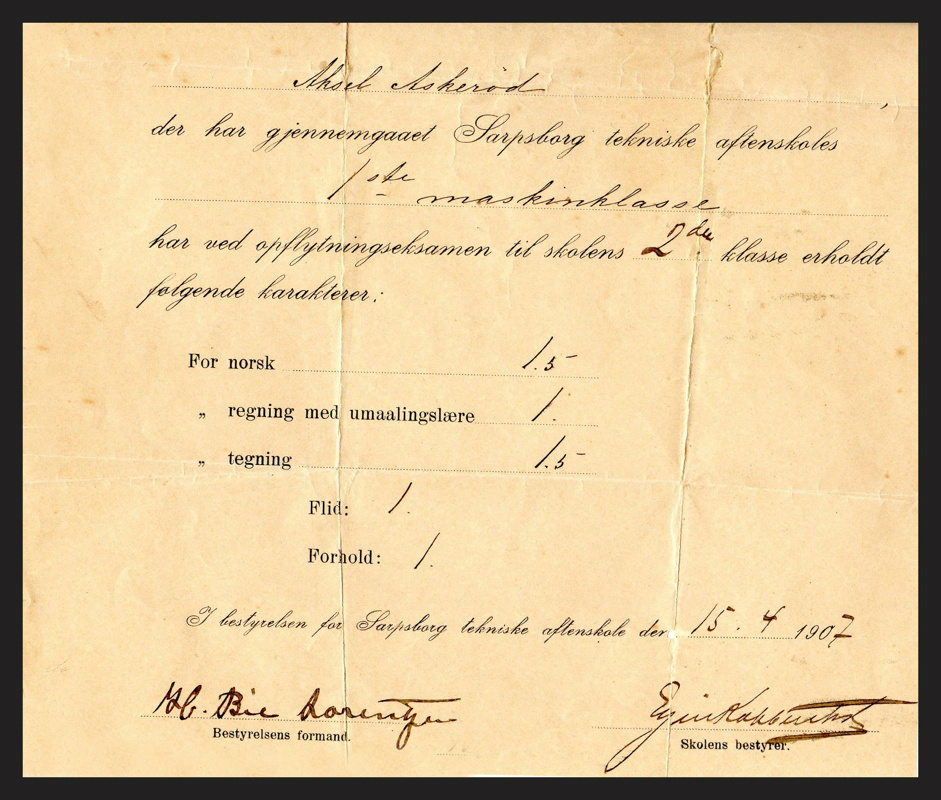 Aksel Askeröd ,
der har gjennemgaaet Sarpsborg tekniske aftenskoles
1ste maskinklasse
har ved opflytningseksamen til skolens 2den klasse erholdt
følgende karakterer:
For norsk 1.5
„ regning med umaalingslære 1.
„ tegning 1.5
Flid: 1.
Forhold: 1.
I bestyrelsen for Sarpsborg tekniske aftenskole den 15.4 1907
H. Bie Lorentzen
Bestyrelsens formand.
Skolens bestyrer.